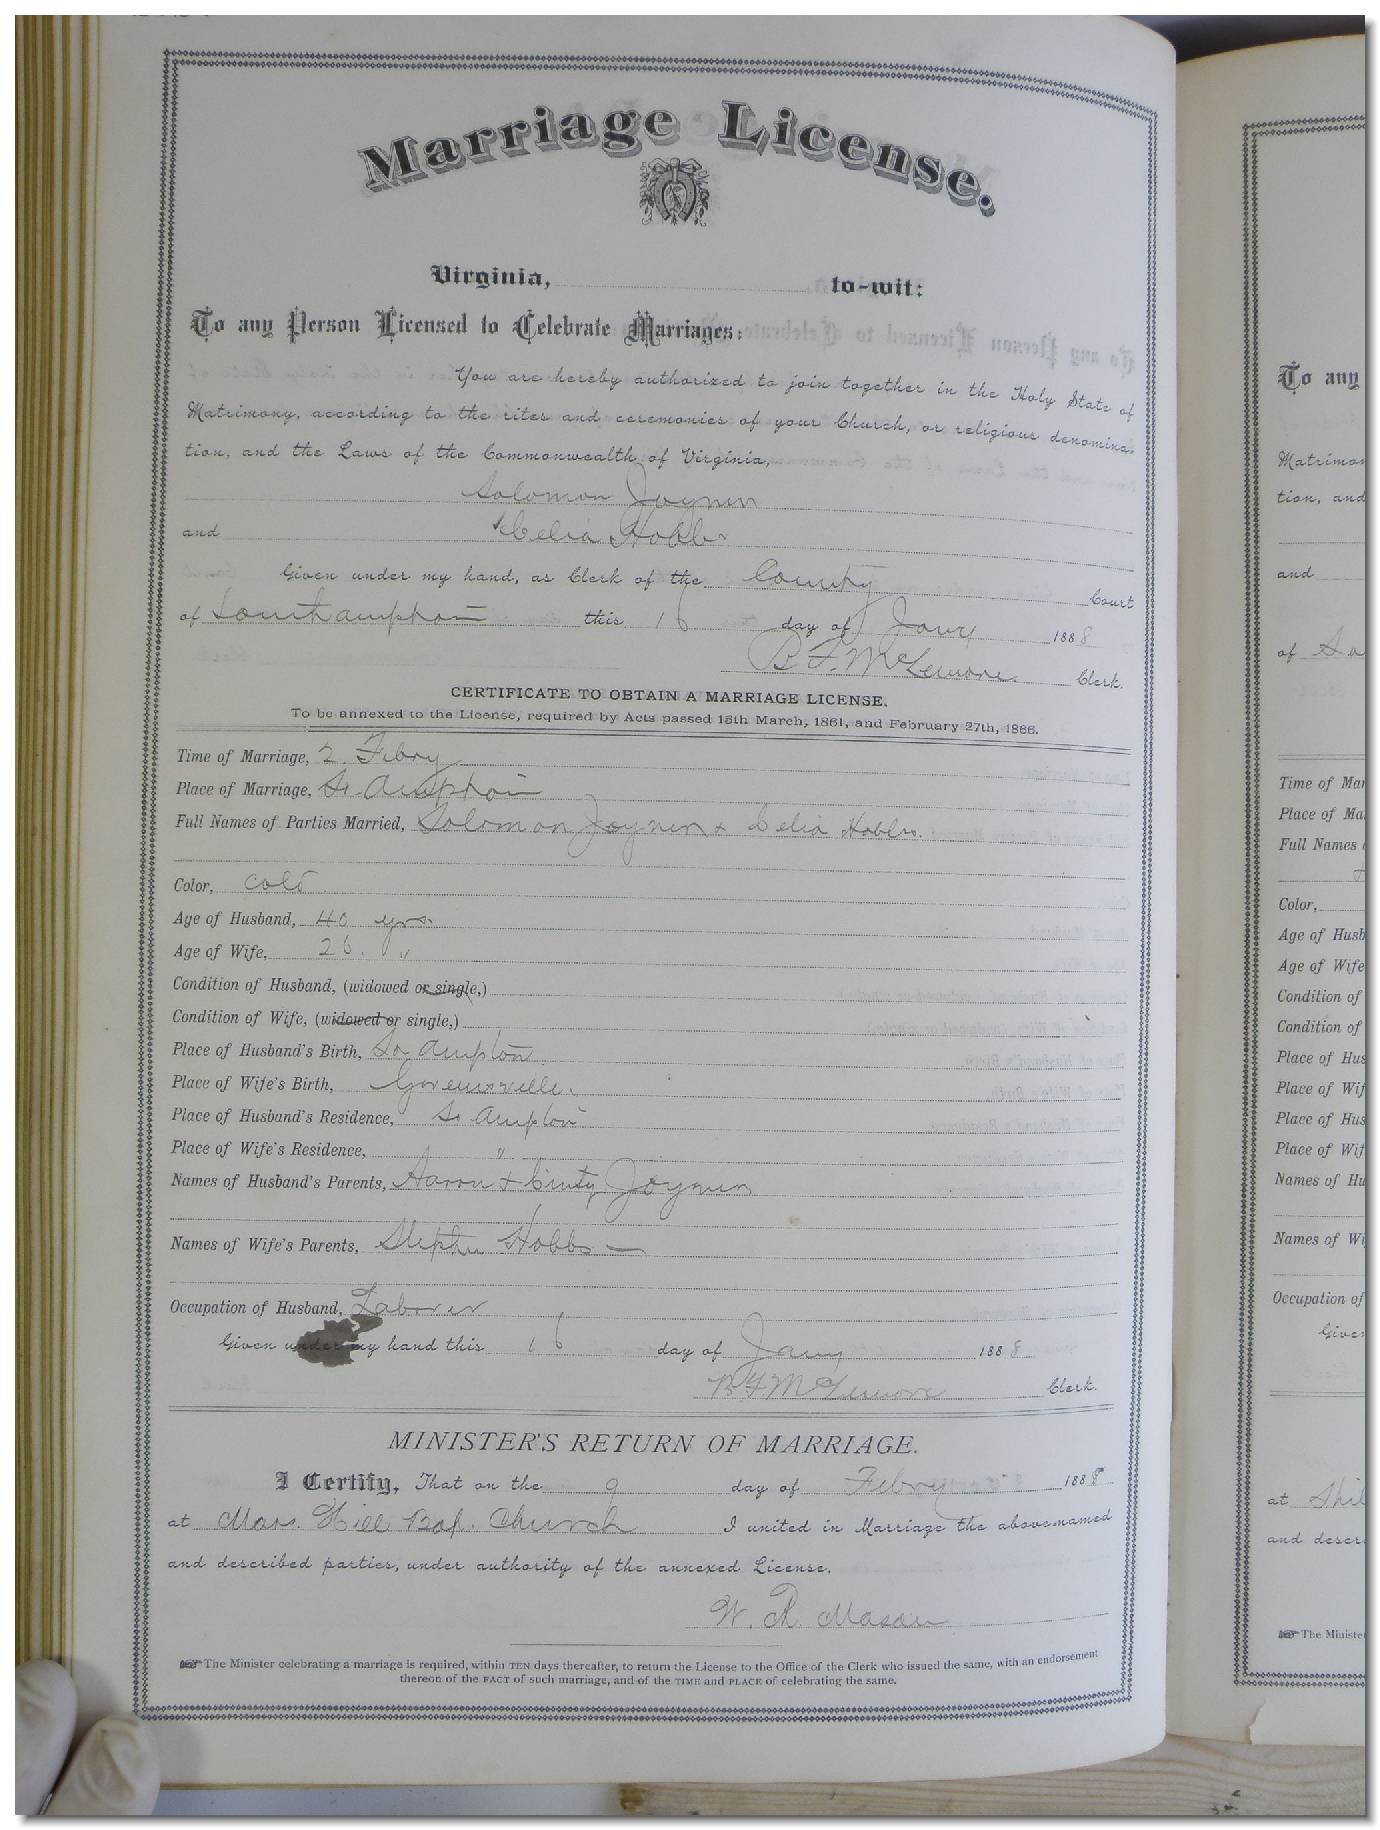 Marriage License.
Virginia, to-wit:
To any Person Licensed to Celebrate Marriages:
You are hereby authorized to join together in the Holy State of
Matrimony, according to the rites and ceremonies of your Church, or religious denomina-
tion, and the Laws of the Commonwealth of Virginia,
Solomon Joyner
and Celia Hobbs
Given under my hand, as Clerk of the County Court
of Southampton this 16 day of Jany 1888
B. F. McLemore. Clerk.
CERTIFICATE TO OBTAIN A MARRIAGE LICENSE.
To be annexed to the License, required by Acts passed 15th March, 1861, and February 27th, 1866.
Time of Marriage, 2 Febry
Place of Marriage, So Ampton
Full Names of Parties Married, Solomon Joyner & Celia Hobbs.
Color, Cold
Age of Husband, 40 yrs.
Age of Wife, 26. "
Condition of Husband, (widowed or single,)
Condition of Wife, (widowed or single,)
Place of Husband's Birth, So Ampton
Place of Wife's Birth, Greensville.
Place of Husband's Residence, So Ampton
Place of Wife's Residence, "
Names of Husband's Parents, Aaron & Cinty Joyner
Names of Wife's Parents, Stephen Hobbs —
Occupation of Husband, Laborer
Given under my hand this 16 day of Jany 1888
B F McLemore Clerk.
MINISTER'S RETURN OF MARRIAGE.
I Certify, That on the 9 day of Febry 1888
at Mars Hill Bap. Church I united in Marriage the above-named
and described parties, under authority of the annexed License.
W. R. Mason
The Minister celebrating a marriage is required, within TEN days thereafter, to return the License to the Office of the Clerk who issued the same, with an endorsement
thereon of the FACT of such marriage, and of the TIME and PLACE of celebrating the same.
To any
tion, and
and
of So
Time of
Place of
Full Names
Color,
Age of
Age of Wife
Condition of
Condition of
Place of
Place of
Place of
Place of
Names of
Names of
Occupation of
at
and
The